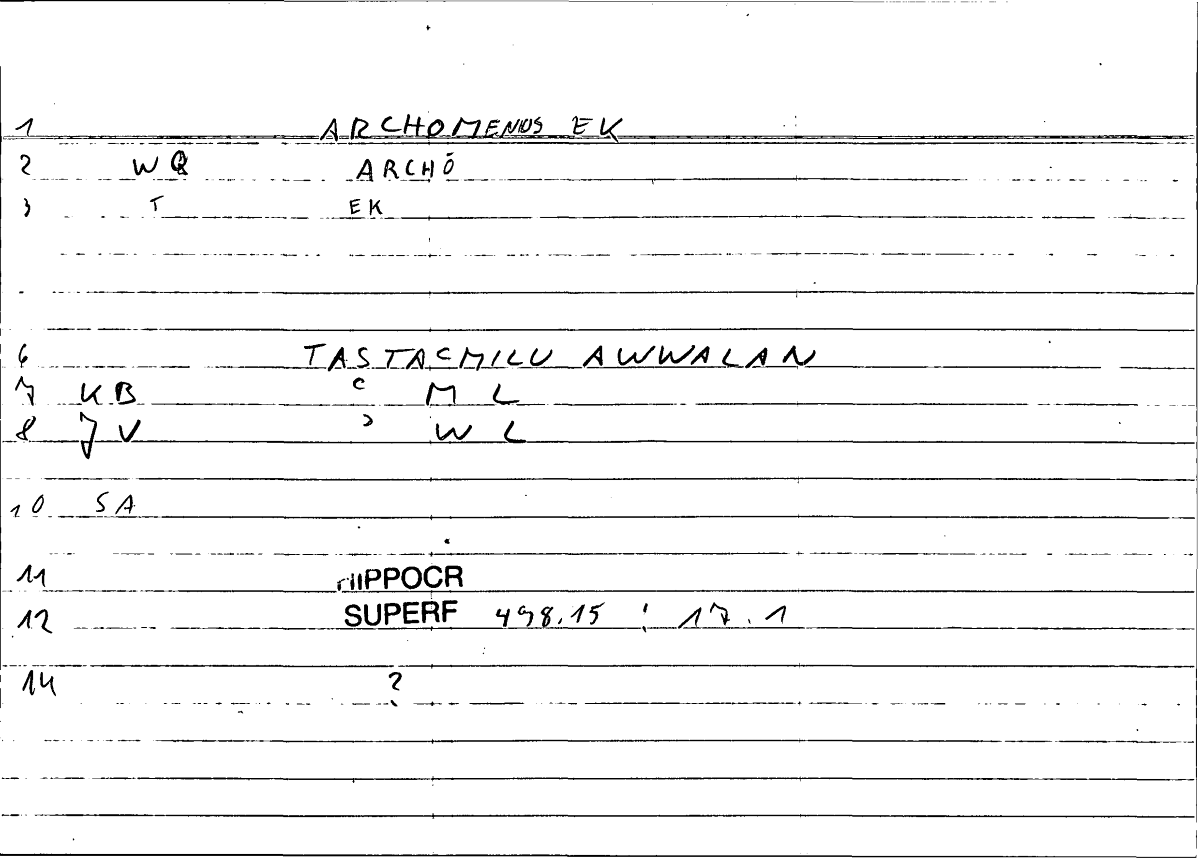 1 ARCHOMENOS EK
2 WQ ARCHŌ
3 T EK
6 TASTAcMILU AWWALAN
7 KB c M L
8 JV ɔ W L
10 SA
11 HIPPOCR
12 SUPERF 498.15 : 17.1
14 ?